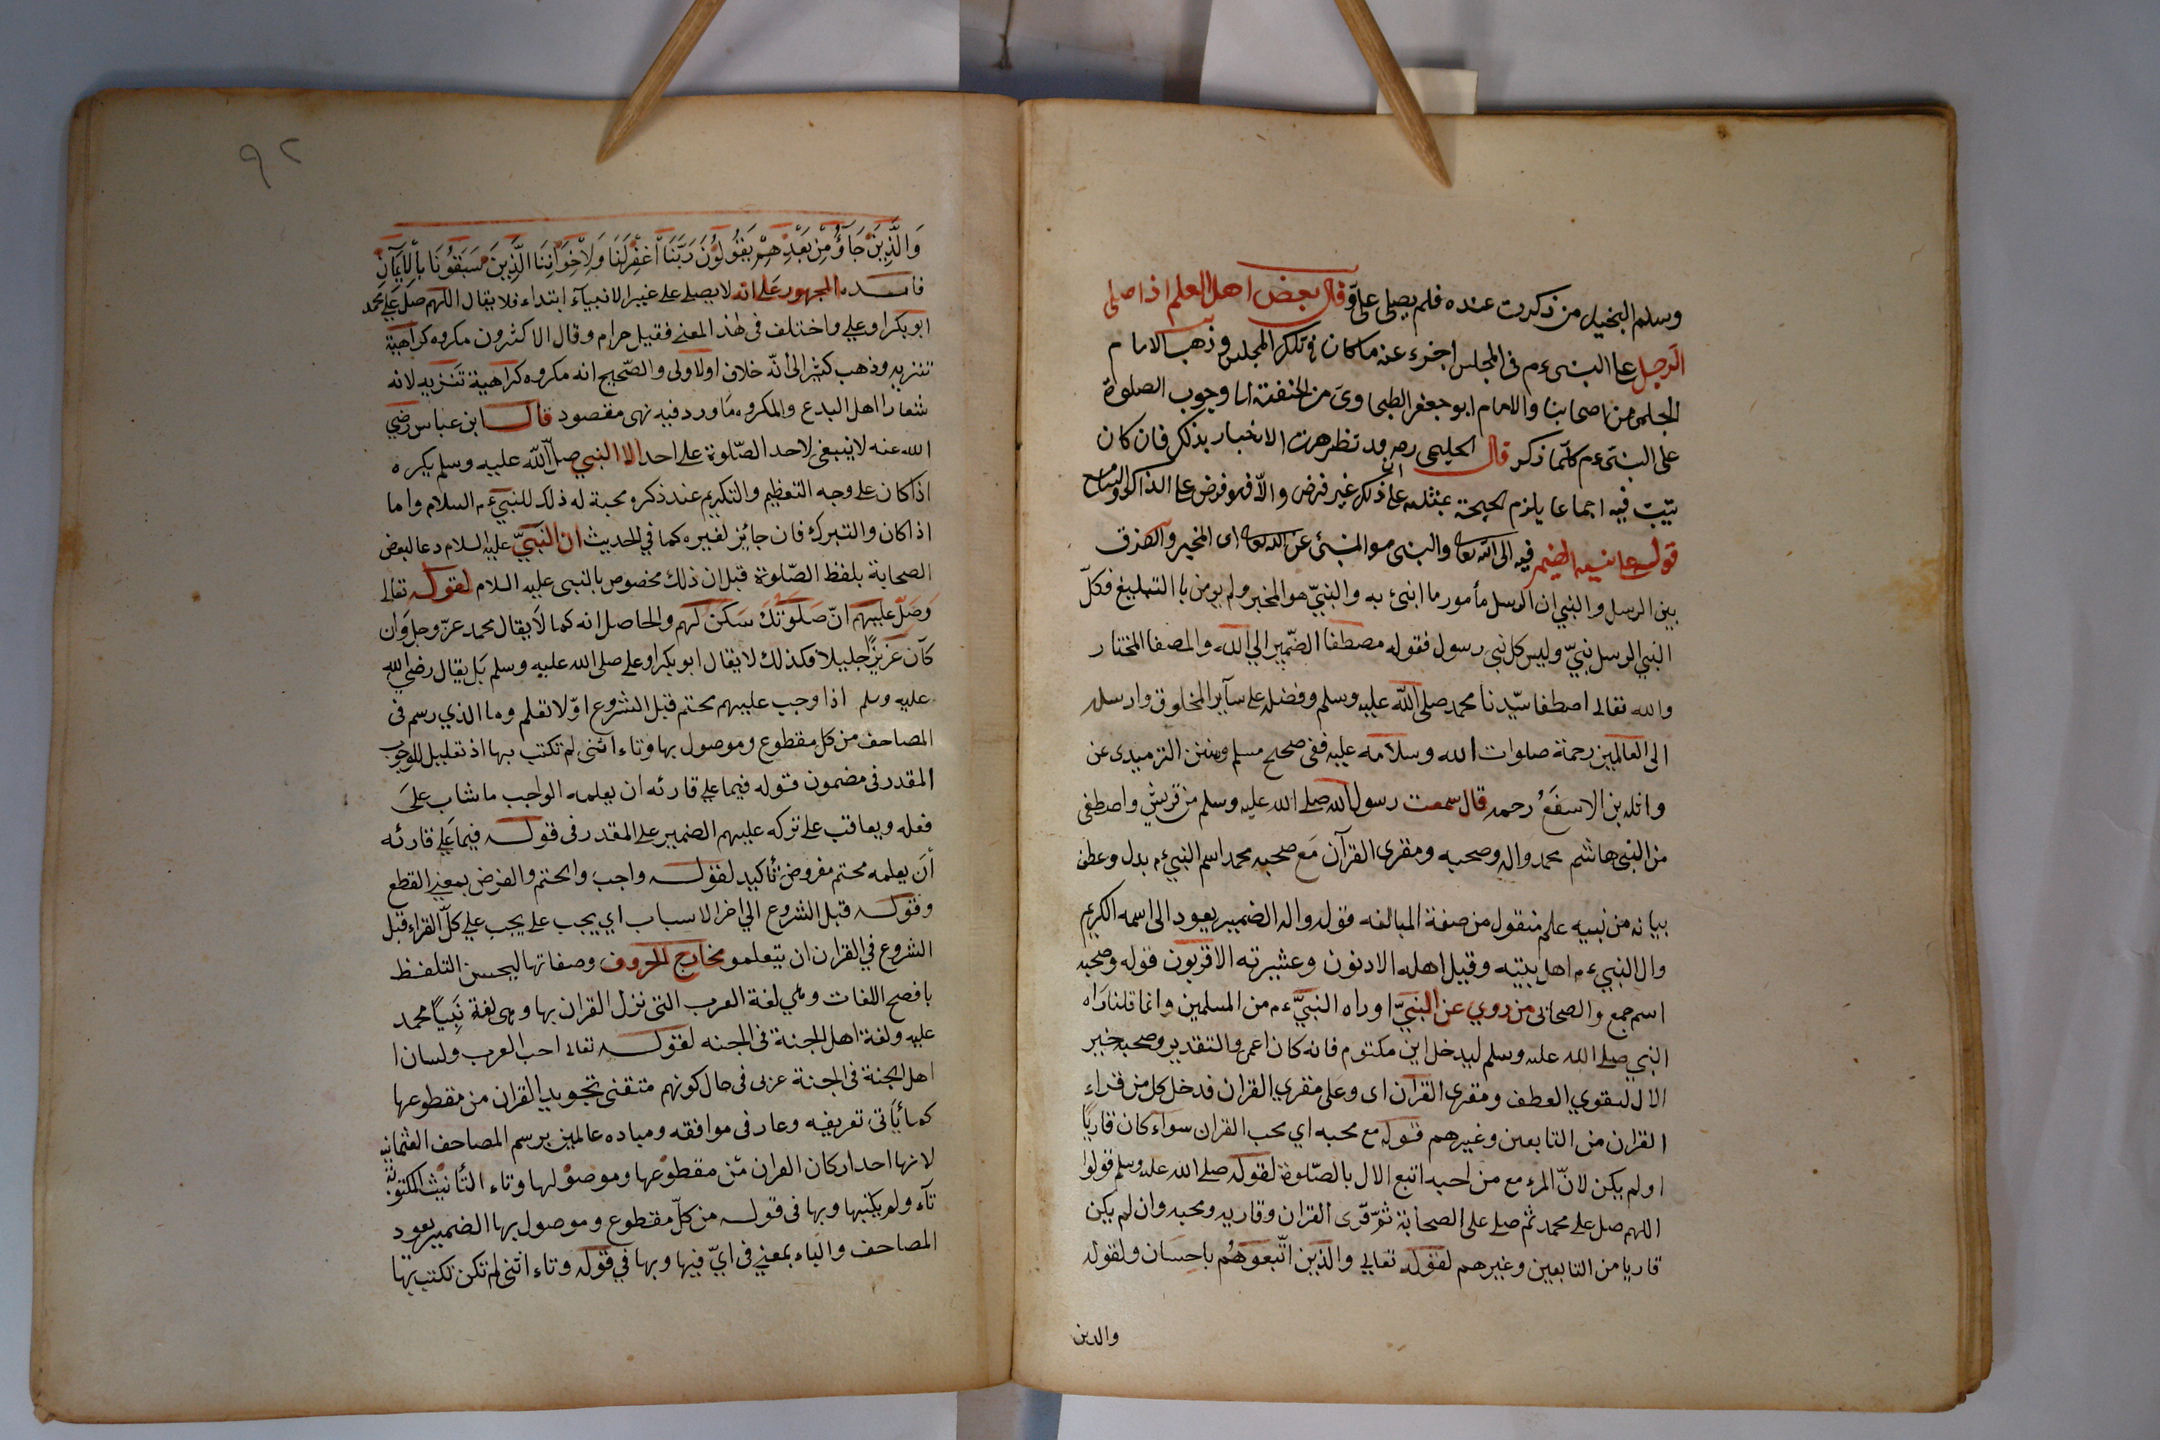 وسلم البخيل من ذكرت عنده فلم يصلى علىّ وقال بعض اهل العلم اذا صلى
الرجل على النبى ءم فى المجلس اجزء عنه ما كان فى تلك المجلس وذهب الامام
الحلمى من اصحابنا والامام ابو جعفر الطحاوى من الحنفية الى وجوب الصلوة
على النبى ءم كلما ذكر قال الحليمى رحمه وقد تظاهرت الاخبار بذلك فان كان
يثبت فيه اجماعا يلزم الحجة بمثله على ان ذكره غير فرض والّا فهو فرض على الذاكر والسامع
قوله على نبيه الضمير فيه الى الله تعالى والنبى هو المنبئ عن الله تعالى اى المخبر والفرق
بين الرسل والنبي ان الرسل مأمور ما انبئ به والنبيّ هو المخبر ولم يومن بالتبليغ فكلّ
النبي الرسل نبيّ وليس كل نبي رسول فقوله مصطفا الضّمير الي الله والمصفا المختار
والله تعالى اصطفا سيّدنا محمد صلى الله عليه وسلم وفضله على سآير المخلوق وارسله
الى العالمين رحمة صلوات الله وسلامه عليه ففى صحيح مسلم وسنن الترميدى عن
واثله بن الاسقع رحمه قال سمعت رسول الله صلى الله عليه وسلم من قريش واصطفى
من النبى هاشم محمد واله وصحبه ومقرى القرآن مع صحبه محمد اسم النبي ءم بدل وعطف
بيانه من نبيه علم منقول من صفة المبالغه قوله واله الضمير يعود الى اسمه الكريم
وال النبي ءم اهل بيته وقيل اهله الادنون وعشيرته الاقربون قوله وصحبه
اسم جمع والصحابى من روي عن النبيّ او راه النبيّ ءم من المسلمين وانما قلنا راه
النبي صلى الله عليه وسلم ليدخل ابن مكتوم فانه كان اعمى والتقدير وصحبه خير
الال لتقوي العطف ومقرى القران اى وعلى مقري القران فدخل كل من قراء
القران من التابعين وغيرهم قوله مع محبه اي محب القران سواء كان قاريا
اولم يكن لانّ المرء مع من احب اتبع الال بالصّلوة لقوله صلى الله عليه وسلم قولوا
اللهم صل على محمد ثم صلى على الصحابة ثمّ قرى القران وقاريه ومحبه وان لم يكن
قاريا من التابعين وغيرهم لقوله تعالي والذين اتّبعوهُم باحسان ولقوله
والدين
٩٢
وَالَّذِينَ جَآؤُ مِنْ بَعْدِهِمْ يَقُولُونَ رَبَّنَا اغْفِرْ لَنَا وَلِاِخْوَانِنَا الَّذِينَ سَبَقُونَا بِالْاِيمَانِ
فائده الجمهور على انه لا يصلى على غير الانبيآء ابتداء فلا يقال اللهم صل على محمد
ابو بكر او علي واختلف فى هذا المعنى فقيل حرام وقال الاكثرون مكروه كراهية
تنزيه وذهب كثير الى انّه خلاف اولا ولى والصّحيح انه مكروه كراهية تنزيه لانه
شعار اهل البدع والمكروه ما ورد فيه نهى مقصود قال ابن عباس رضي
الله عنه لا ينبغى لاحد الصّلوة على احد الا النبي صلّى الله عليه وسلم يكره
اذا كان على وجه التعظيم والتكريم عند ذكره محبة له ذلك للنبيء م السلام واما
اذا كان والتبرك فان جايز لغيره كما في الحديث ان النّبيّ عليه السلام دعا لبعض
الصحابة بلفظ الصّلوة قبل ان ذلك مخصوص بالنبى عليه السلام لقوله تعالى
وَصَلّ عليهم انّ صَلَوتَكَ سَكَنٌ لهم والحاصل انه كما لا يقال محمد عزّ وجل وان
كان عَزيزًا جليلا فكذلك لا يقال ابو بكر او على صلى الله عليه وسلم بَل يقال رضي الله
عليه وسلم اذا وجب عليهم محتم قبل الشروع اوّلا تعلم وما الذي رسم فى
المصاحف من كل مقطوع وموصول بها وتاء انثى لم تكتب بها اذ تعليل للوجوب
المقدر فى مضمون قوله فيما على قارئه ان يعلمه الواجب ما شاب على
فعله ويعاقب على تركه عليهم الضمير على المقدر فى قوله فيما على قارئه
أن يعلمه محتم مفروض تأكيد لقوله واجب والحتم والفرض بمعني القطع
وقوله قبل الشروع الي اخر الاسباب اي يجب على يجب علي كلّ القراء قبل
الشروع في القران ان يتعلمو مخارج الحروف وصفاتها ليحسن التلفظ
بافصح اللغات وهي لغة العرب التى نزل القران بها وهى لغة نَبِيّنا محمد
عليه ولغة اهل الجنة فى الجنه لقوله تعالى احب العرب ولسان ا
اهل الجنة فى الجنة عربى فى حال كونهم متقنى تجويد القران من مقطوعها
كما يأتى تعريفه وعار فى موافقه ومباده عالمين برسم المصاحف العثمانيه
لانها احد اركان القران من مقطوعها وموصولها وتاء التأنيث المكتوبة
تآء ولم يكتبها وبها فى قوله من كلّ مقطوع وموصول بها الضمير يعود
المصاحف والباء بمعني فى ايّ فيها وبها في قوله وتاء انثى لم تكن تكتب بها